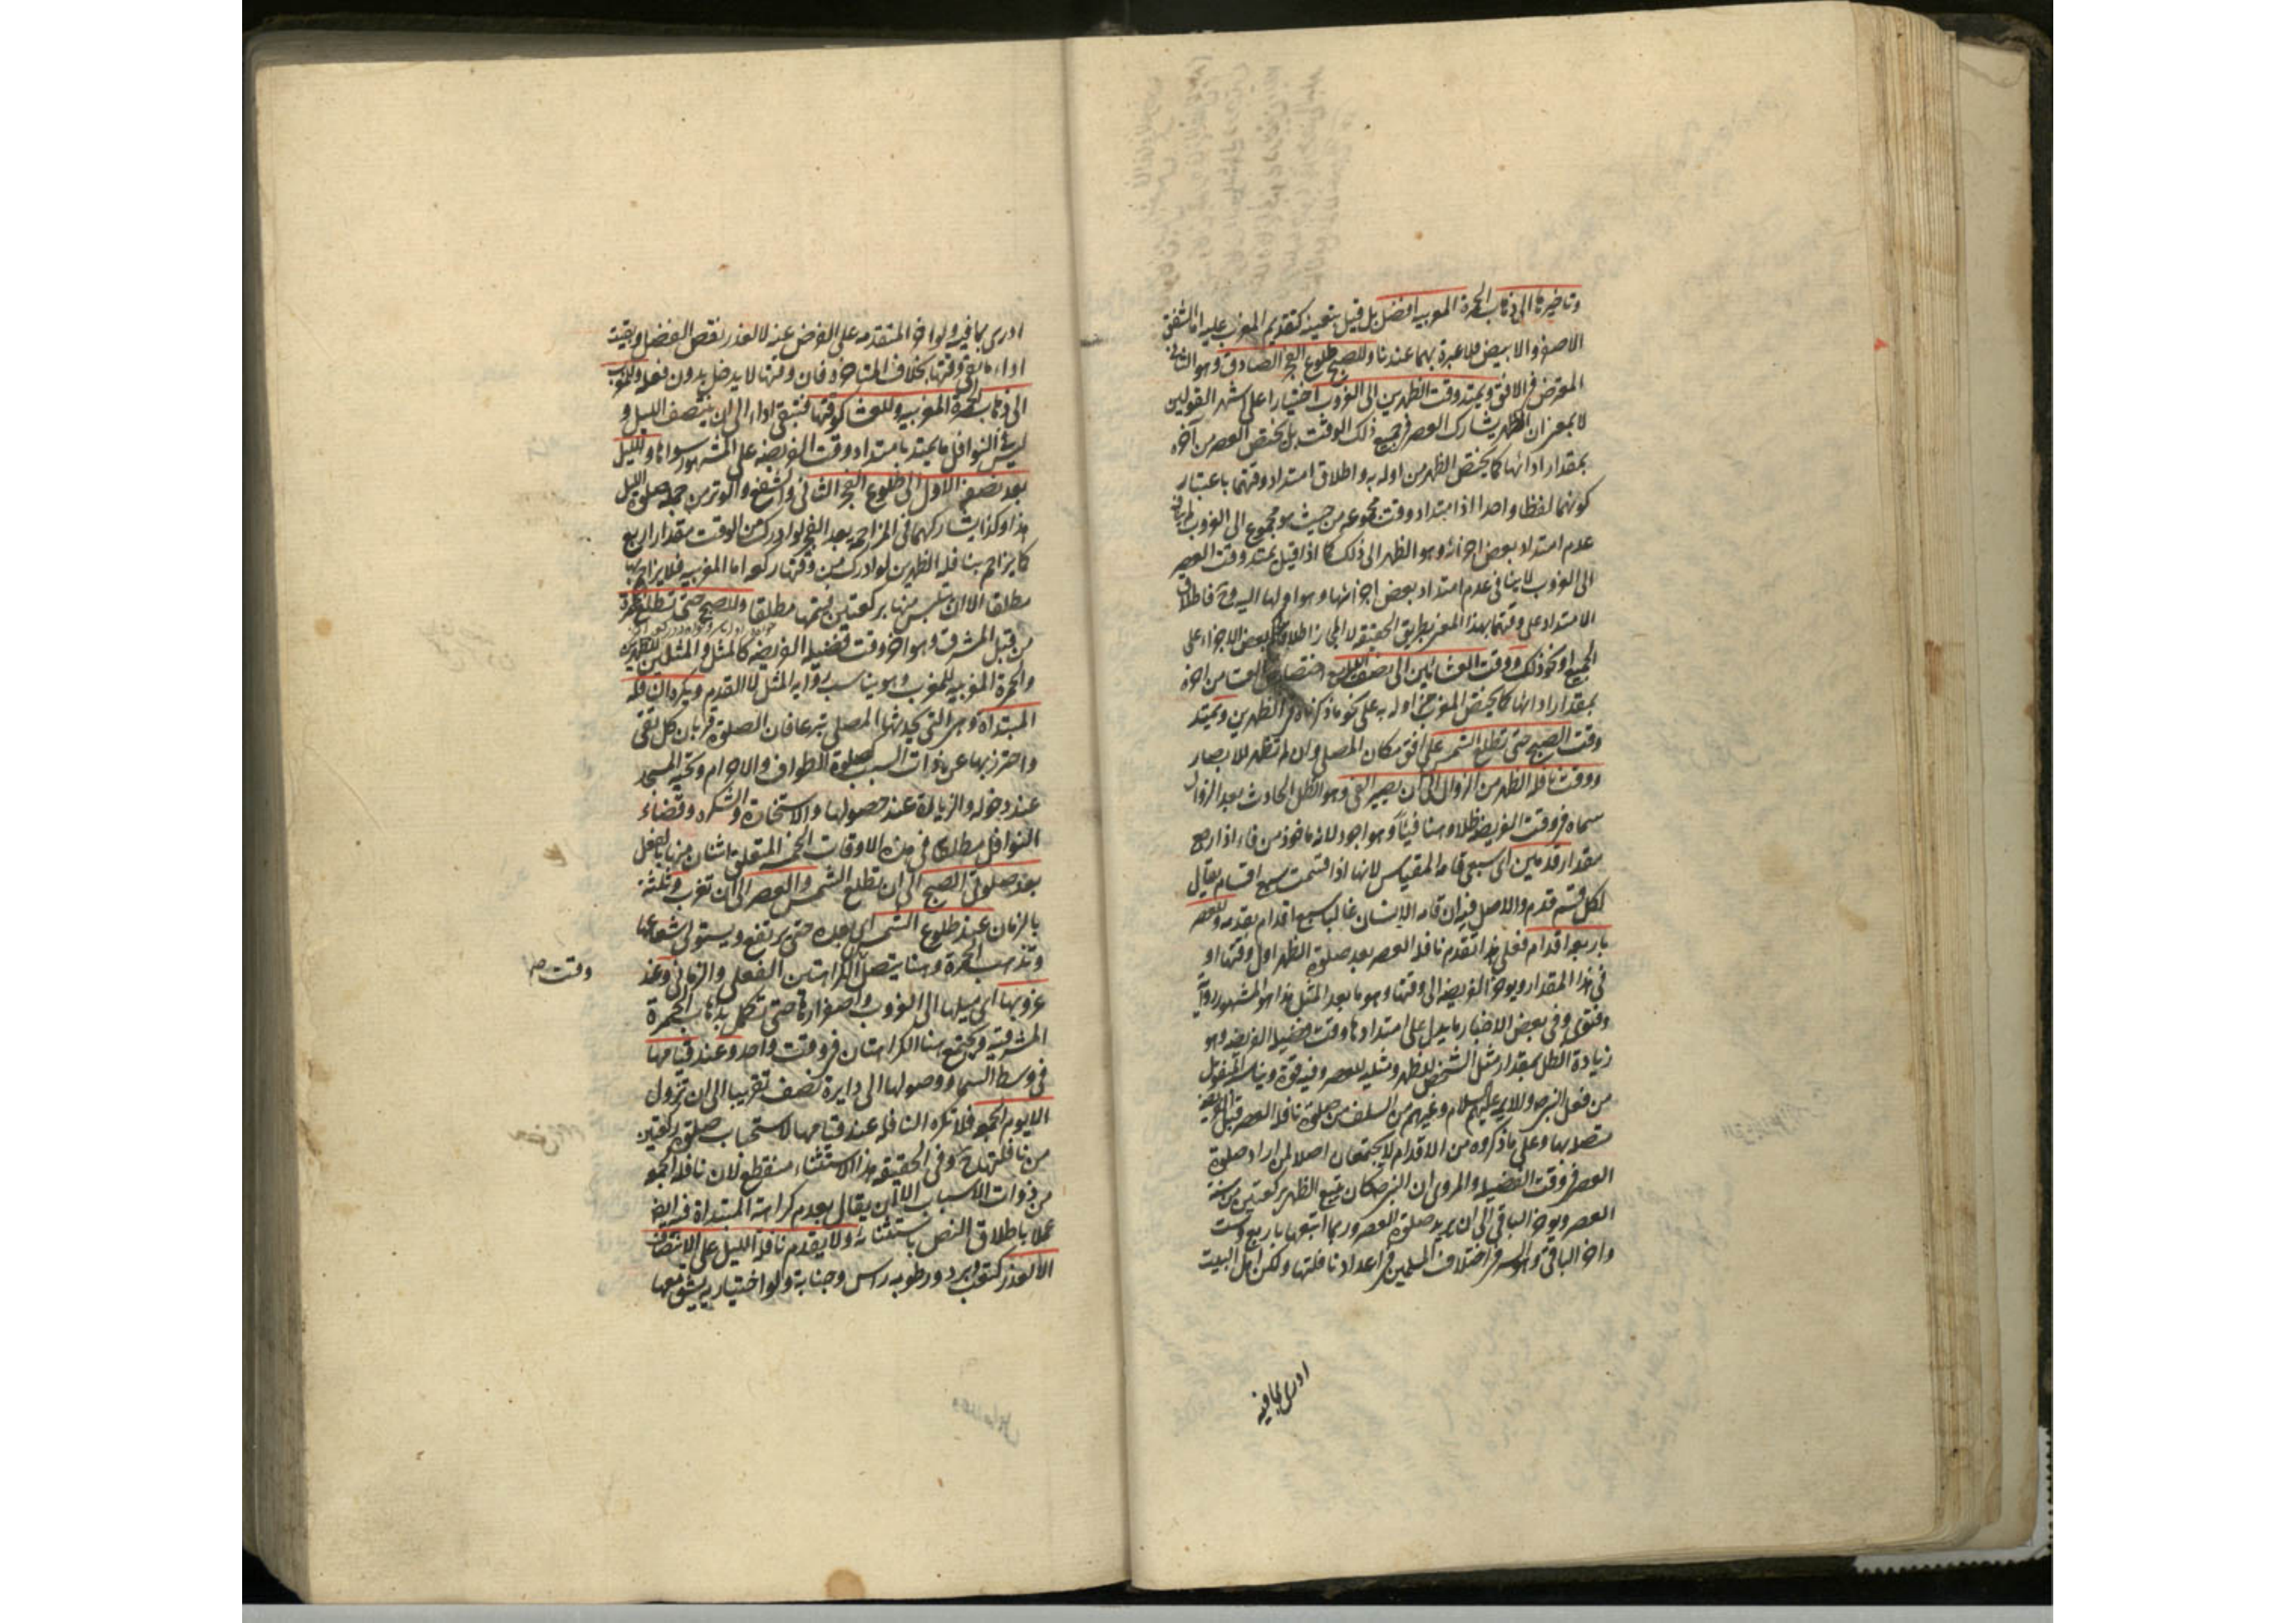 وتاخيرها الى ذهاب الحمرة المغربيه افضل بل قيل بتعينه كتقديم المغرب عليه اما الشفق
الاصفر والابيض فلا عبرة بهما عندنا وللصبح طلوع الفجر الصادق وهو الثانى
المعترض فى الافق ويمتد وقت الظهرين الى الغروب اختيارا على اشهر القولين
لا بمعنى ان الظهر يشارك العصر فى جميع ذلك الوقت بل يختص العصر من آخره
بمقدار ادائها كما يختص الظهر من اوله به واطلاق امتداد وقتهما باعتبار
كونهما لفظا واحدا اذا امتد وقت مجموعه من حيث هو مجموع الى الغروب لم يناف
عدم امتداد بعض اجزائه وهو الظهر الى ذلك كما اذا قيل يمتد وقت العصر
الى الغروب لا ينافى عدم امتداد بعض اجزائها وهو اولها اليه وح فاطلاق
الامتداد على وقتهما بهذا المعنى بطريق الحقيقة لا المجاز اطلاقا لحكم بعض الاجزاء على
الجميع او نحو ذلك ووقت العشائين الى نصف الليل مع اختصاص العشا من اخره
بمقدار ادائها كما يختص المغرب من اوله به على نحو ما ذكرناه فى الظهرين ويمتد
وقت الصبح حتى تطلع الشمس على افق مكان المصلى وان لم تظهر للابصار
ووقت نافلة الظهر من الزوال الى ان يصير الفى وهو الظل الحادث بعد الزوال
سماه فى وقت الفريضه ظلا وهنا فيئا وهو اجود لانه ماخوذ من فاء اذا رجع
مقدار قدمين اى سبعى قامه المقياس لانها اذا قسمت سبع اقسام يقال
لكل قسم قدم والاصل فيه ان قامه الانسان غالبا سبع اقدام بقدمه وللعصر
باربعه اقدام فعلى هذا تقدم نافلة العصر بعد صلوة الظهر اول وقتها او
فى هذا المقدار ويؤخر الفريضه الى وقتها وهو ما بعد المثل هذا هو المشهور رواية
وفتوى وفى بعض الاخبار ما يدل على امتدادها وقت فضيلة الفريضه وهو
زيادة الظل بمقدار مثل الشخص للظهر ومثليه للعصر وفيه قوة ويناسبه المنقول
من فعل النبى ص والايمه عليهم السلام وغيرهم من السلف من صلوة نافلة العصر قبل الفريضه
متصله بها وعلى ما ذكروه من الاقدام لا يجتمعان اصلا لمن اراد صلوة
العصر فى وقت الفضيله والمروى ان النبى ص كان يتبع الظهر بركعتين من سنة
العصر ويؤخر الباقى الى ان يريد صلوة العصر وربما اتبعها باربع وست
واخر الباقى وهو السر فى اختلاف المسلمين فى اعداد نافلتها ولكن اهل البيت
ادرى بما فيه
ادرى بما فيه ولو اخر المتقدمه على الفرض عنه لا لعذر نقص الفضل وبقيت
اداء ما بقى وقتها بخلاف المتاخره فان وقتها لا يدخل بدون فعله وللمغرب
الى ذهاب الحمرة المغربيه وللعشا كوقتها فتبقى اداء الى ان ينتصف الليل و
ليس فى النوافل ما يمتد بامتداد وقت الفريضه على المشهور سواها ولليل
بعد نصفه الاول الى طلوع الفجر الثانى والشفع والوتر من جمله صلوة الليل
هنا وكذا يشاركهما فى المزاحمه بعد الفجر لو ادرك من الوقت مقدار اربع
كما يزاحم بنافله الظهرين لو ادرك من وقتها ركعه اما المغربيه فلا يزاحم بها
مطلقا الا ان يتلبس منها بركعتين فيتمها مطلقا وللصبح حتى تطلع الحمرة
من قبل المشرق وهو اخر وقت فضيلة الفريضه كالمثل والمثلين للظهرين
والحمرة المغربيه للمغرب وهو يناسب روايه المثل لا القدم ويكره النافله
المبتداة وهى التى يحدثها المصلى تبرعا فان الصلوة قربان كل تقى
واحترز بها عن ذوات السبب كصلوة الطواف والاحرام وتحيه المسجد
عند دخوله والزيارة عند حصولها والاستخارة والشكر وقضاء
النوافل مطلقا فى هذه الاوقات الخمسه المتعلق اثنان منها بالفعل
بعد صلوة الصبح الى ان تطلع الشمس والعصر الى ان تغرب وثلثة
بالزمان عند طلوع الشمس اى بعده حتى يرتفع ويستولى شعاعها
وتذهب الحمرة وهنا يتصل الكراهتين الفعلى والزمانى وعند
وقت
غروبها اى ميلها الى الغروب واصفرارها حتى تكمل بذهاب الحمرة
المشرقيه ويجتمع هنا الكراهتان فى وقت واحد وعند قيامها
فى وسط السماء ووصولها الى دايرة نصف تقريبا الى ان تزول
الا يوم الجمعه فلا تكره النافله عند قيامها لاستحباب صلوة ركعتين
من نافلتها ح وفى الحقيقه هذا الاستثناء منقطع لان نافلة الجمعه
من ذوات الاسباب الا ان يقال بعدم كراهة المبتداة فيه ايضا
عملا باطلاق النص باستثنائه ولا يقدم نافلة الليل على الانتصاف
الا لعذر كتعب وبرد ورطوبه راس وجنابة ولو اختيارية يشق معها